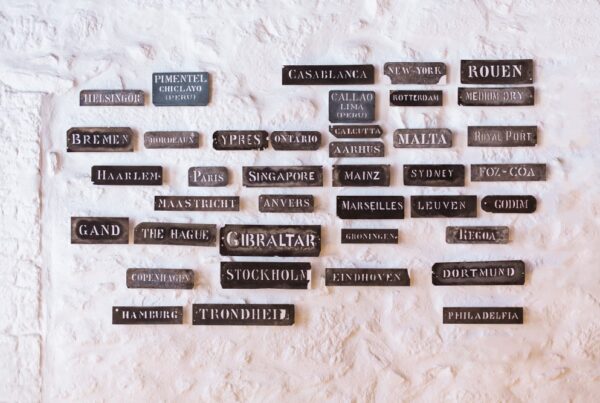 CASABLANCA
NEW-YORK
ROUEN
PIMENTEL
CHICLAYO
(PERU)
HELSINGÖR
CALLAO
LIMA
(PERU)
ROTTERDAM
MEDIUM DRY
BREMEN
BORDEAUX
YPRES
ONTARIO
CALCUTTA
AARHUS
MALTA
ROYAL PORT
HAARLEM
PARIS
SINGAPORE
MAINZ
SYDNEY
FOZ-COA
MAASTRICHT
ANVERS
MARSEILLES
LEUVEN
GODIM
GAND
THE HAGUE
GIBRALTAR
GRONINGEN
REGOA
COPENHAGEN
STOCKHOLM
EINDHOVEN
DORTMUND
HAMBURG
TRONDHEIL
PHILADELFIA